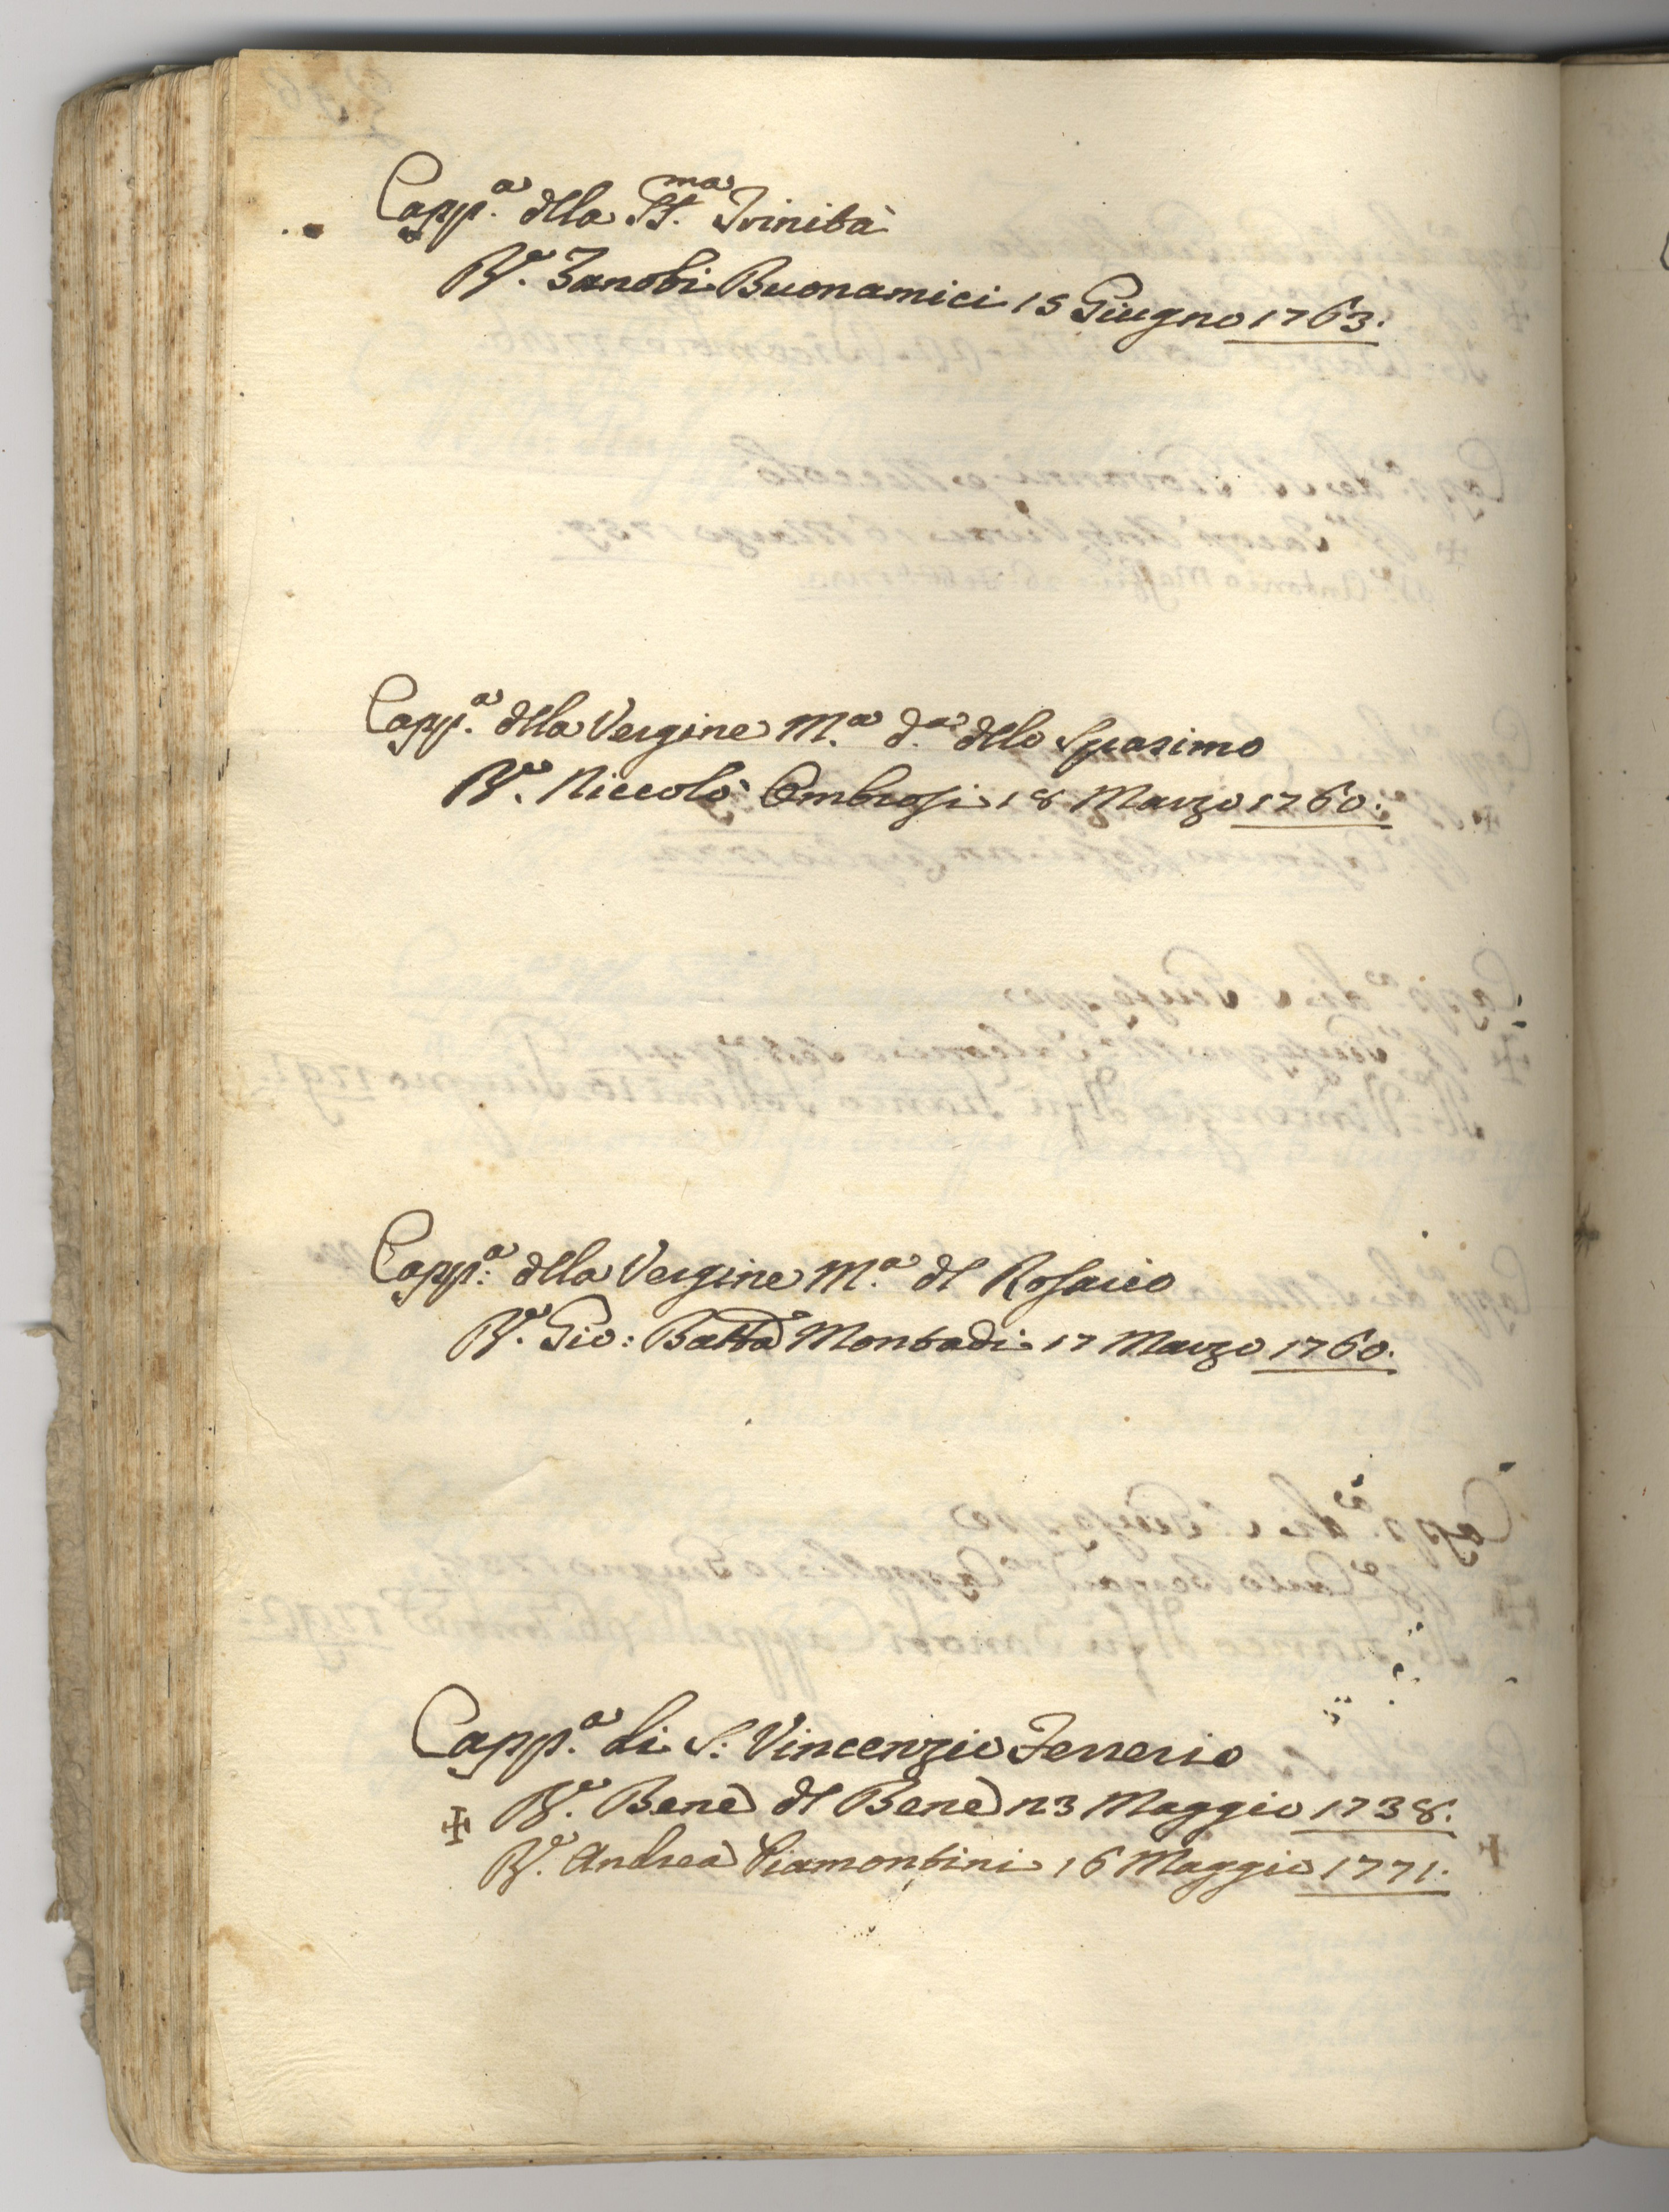 Capp.a della SS.ma Trinità
R.e Zanobi Buonamici 15 Giugno 1763.
Capp.a della Vergine M.a d.a dello Spasimo
R.e Niccolò Ambrosi 18 Marzo 1760.
Capp.a della Vergine M.a del Rosario
R.e Gio: Batta Montadi 17 Marzo 1760.
Capp.a di S. Vincenzio Ferrerio
✠ R.e Bene del Bene 23 Maggio 1738.
R.e Andrea Piamontini 16 Maggio 1771.